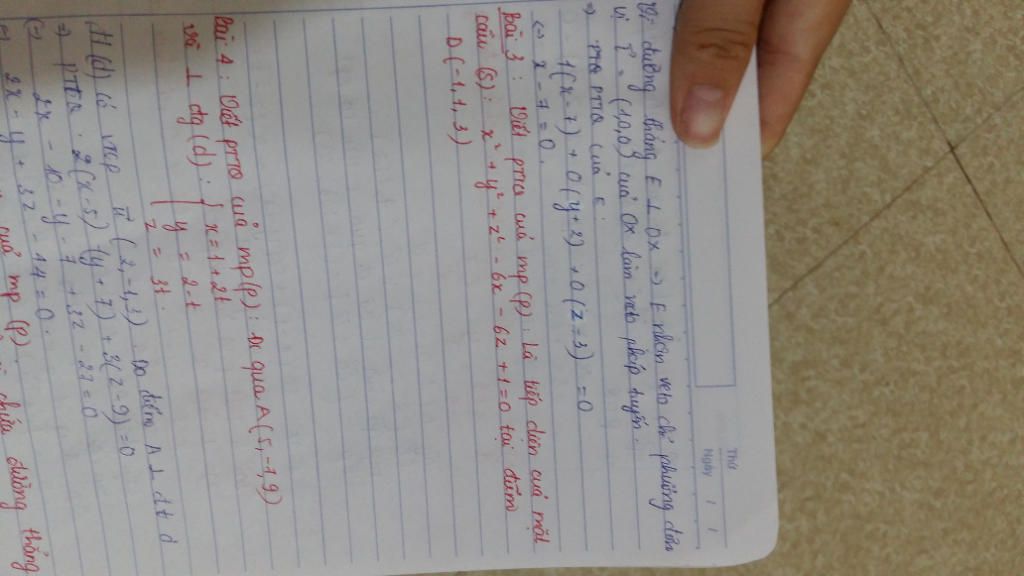 Thứ
Ngày / /
Vì đường thẳng E ⊥ Ox ⇒ E nhận vectơ chỉ phương đơn
vị i⃗ = (1,0,0) của Ox làm vectơ pháp tuyến.
⇒ PTTQ của E:
1(x-7) + 0(y+2) + 0(z-3) = 0
⇔ x - 7 = 0.
Bài 3: Viết PTTQ của mp(P): Là tiếp diện của mặt
cầu (S): x² + y² + z² - 6x - 6z + 1 = 0 tại điểm
D(-1,1,3)
Bài 4: Viết PTTQ của mp(P): Đi qua A(5,-7,9)
và ⊥ đg(d): { x = 1+2t
y = 2-t
z = 3t.
(d) có VTCP (2,-1,3). Do điểm A ⊥ dt d
⇒ PTTQ: 2(x-5) (y+7) + 3(z-9) = 0
⇔ 2x - 10 - y - 7 + 3z - 27 = 0
⇔ 2x - y + 3z - 44 = 0.
của mp (P) chứa đường thẳng